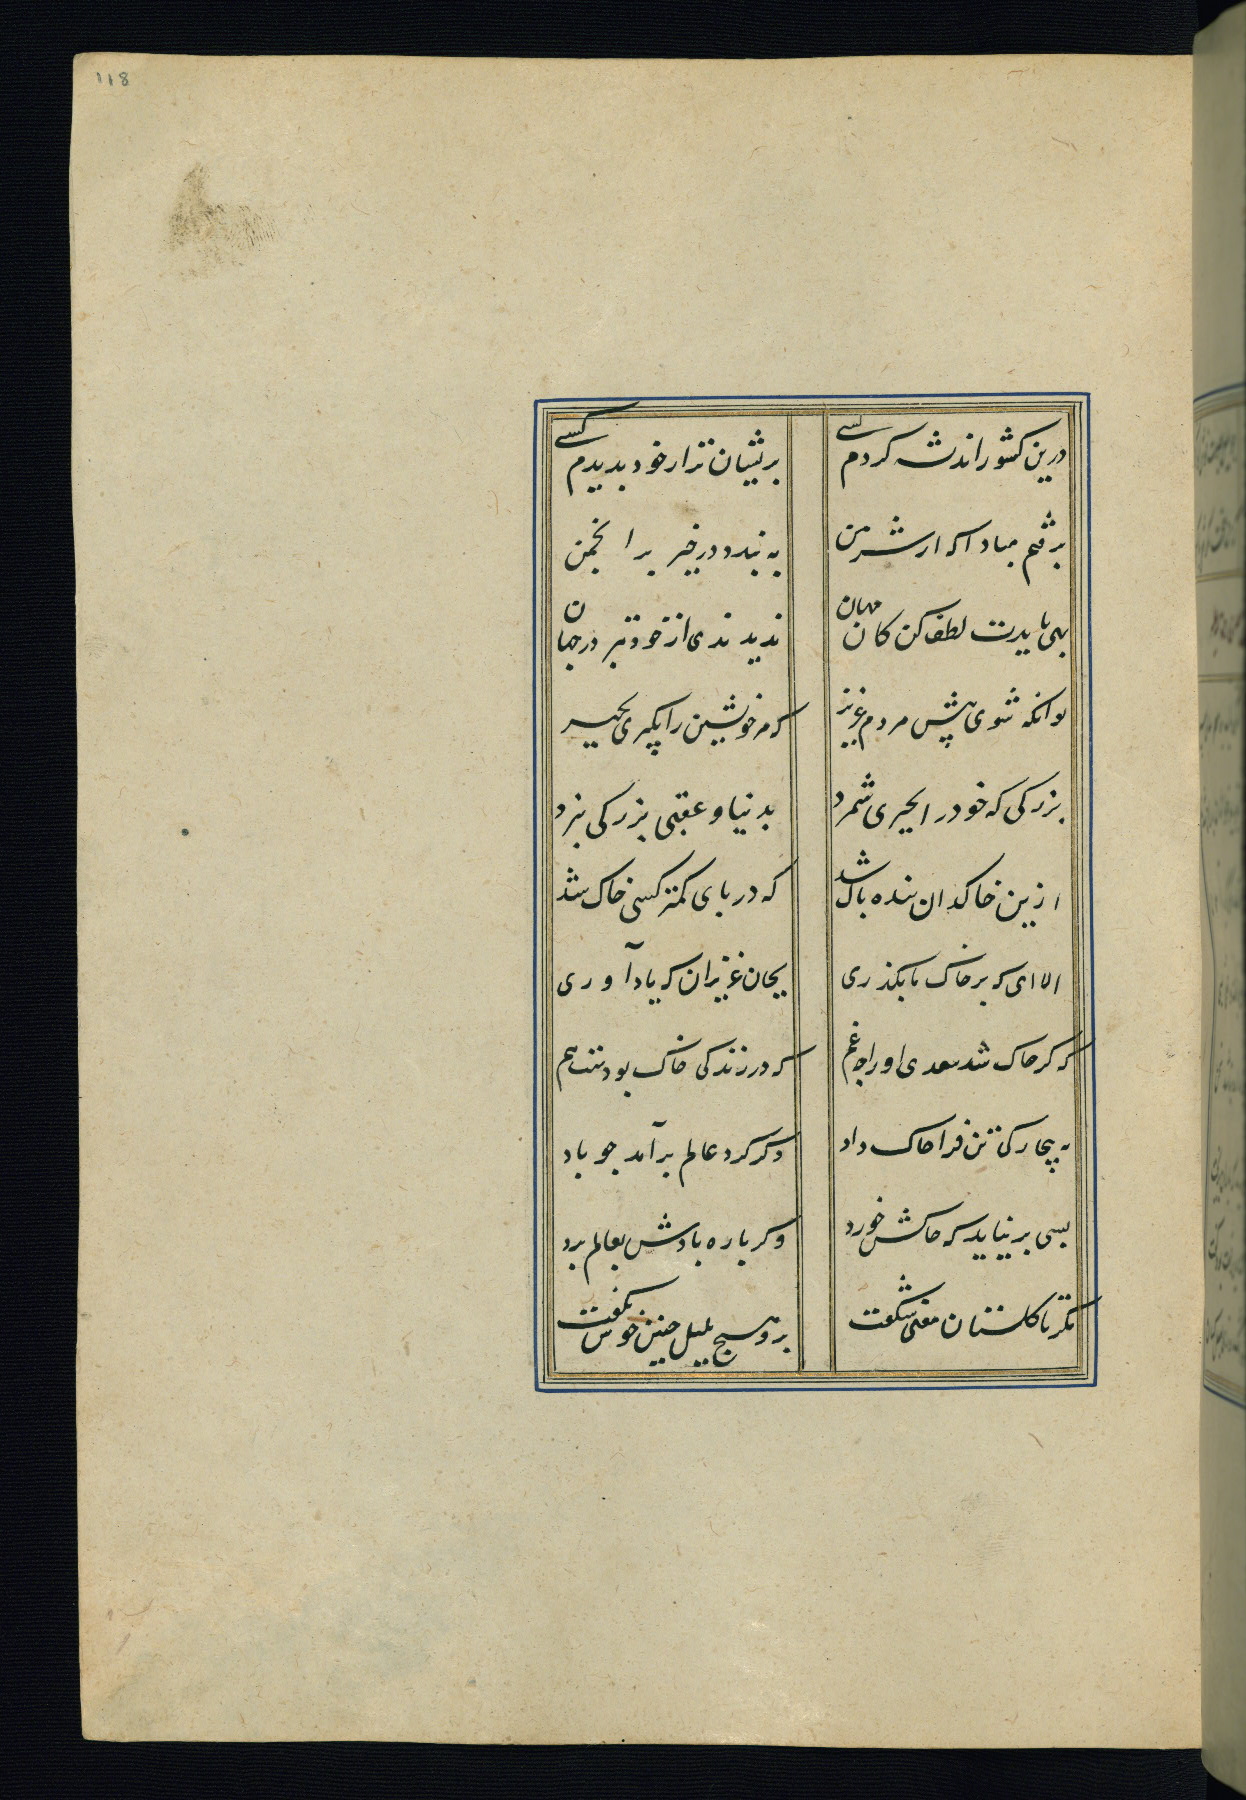 118
درین کشور اندیشه کردم بسی
پریشان تر از خود ندیدم کسی
برفتم مبادا که از شر من
به بندد در خیر بر انجمن
بهی بایدت لطف کن کان مهان
ندیدندی از خود تبر در جهان
تو آنکه شوی پیش مردم عزیز
که مر خویشتن را نگیری بچیز
بزرگی که خود را بخیری شمرد
بدنیا و عقبی بزرگی ببرد
ازین خاکدان بنده پاک شد
که در پای کمتر کسی خاک شد
الا ای که بر خاک ما بگذری
بجان عزیزان که یاد آوری
که گر خاک شد سعدی او را چه غم
که در زندگی خاک بودست هم
به بیچارگی تن فرا خاک داد
دگر گرد عالم برآمد چو باد
بسی بر نیاید که خاکش خورد
دگر باره بادش بعالم برد
مگر تا گلستان معنی شگفت
برو هیچ بلبل چنین خوش نگفت